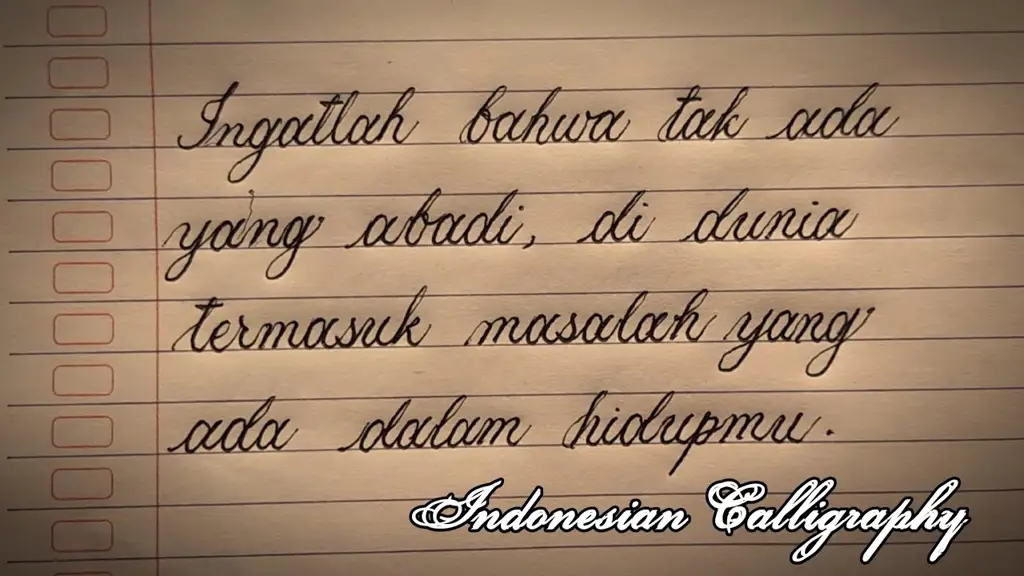 Ingatlah bahwa tak ada
yang abadi, di dunia
termasuk masalah yang
ada dalam hidupmu.
Indonesian Calligraphy